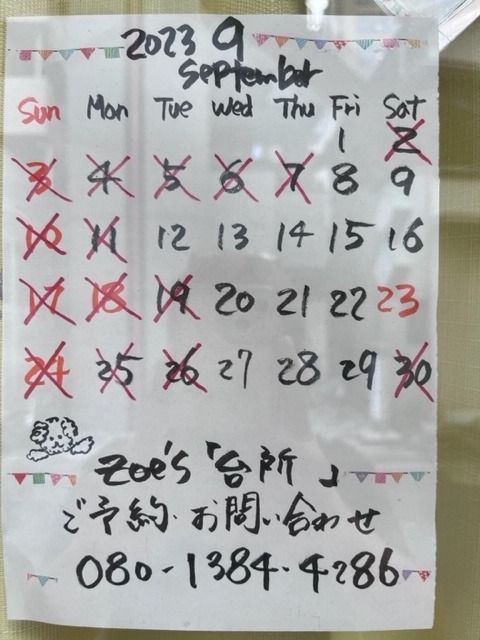 2023 9
September
Sun Mon Tue Wed Thu Fri Sat
1 2
3 4 5 6 7 8 9
10 11 12 13 14 15 16
17 18 19 20 21 22 23
24 25 26 27 28 29 30
Zoe's「台所」
ご予約・お問い合わせ
080-1384-4286